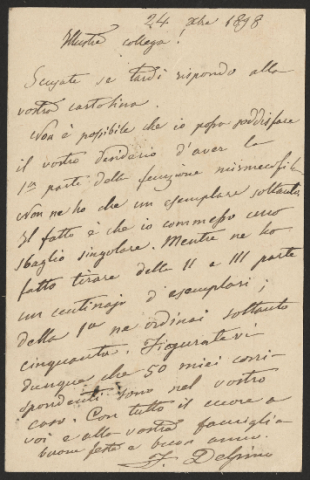 24 Xbre 1898
Illustre collega!
Scusate se tardi rispondo alla
vostra cartolina.
Non è possibile che io possa soddisfare
il vostro desiderio d'aver la
1ª parte della funzione mirmecofila
Non ne ho che un esemplare soltanto
Il fatto è che io commesso uno
sbaglio singolare. Mentre ne ho
fatto tirare della II e III parte
un centinajo d'esemplari;
della 1ª ne ordinai soltanto
cinquanta. Figuratevi
dunque che 50 miei corri-
spondenti sono nel vostro
caso. Con tutto il cuore a
voi e alla vostra famiglia
buone feste e buon anno.
F. Delpino